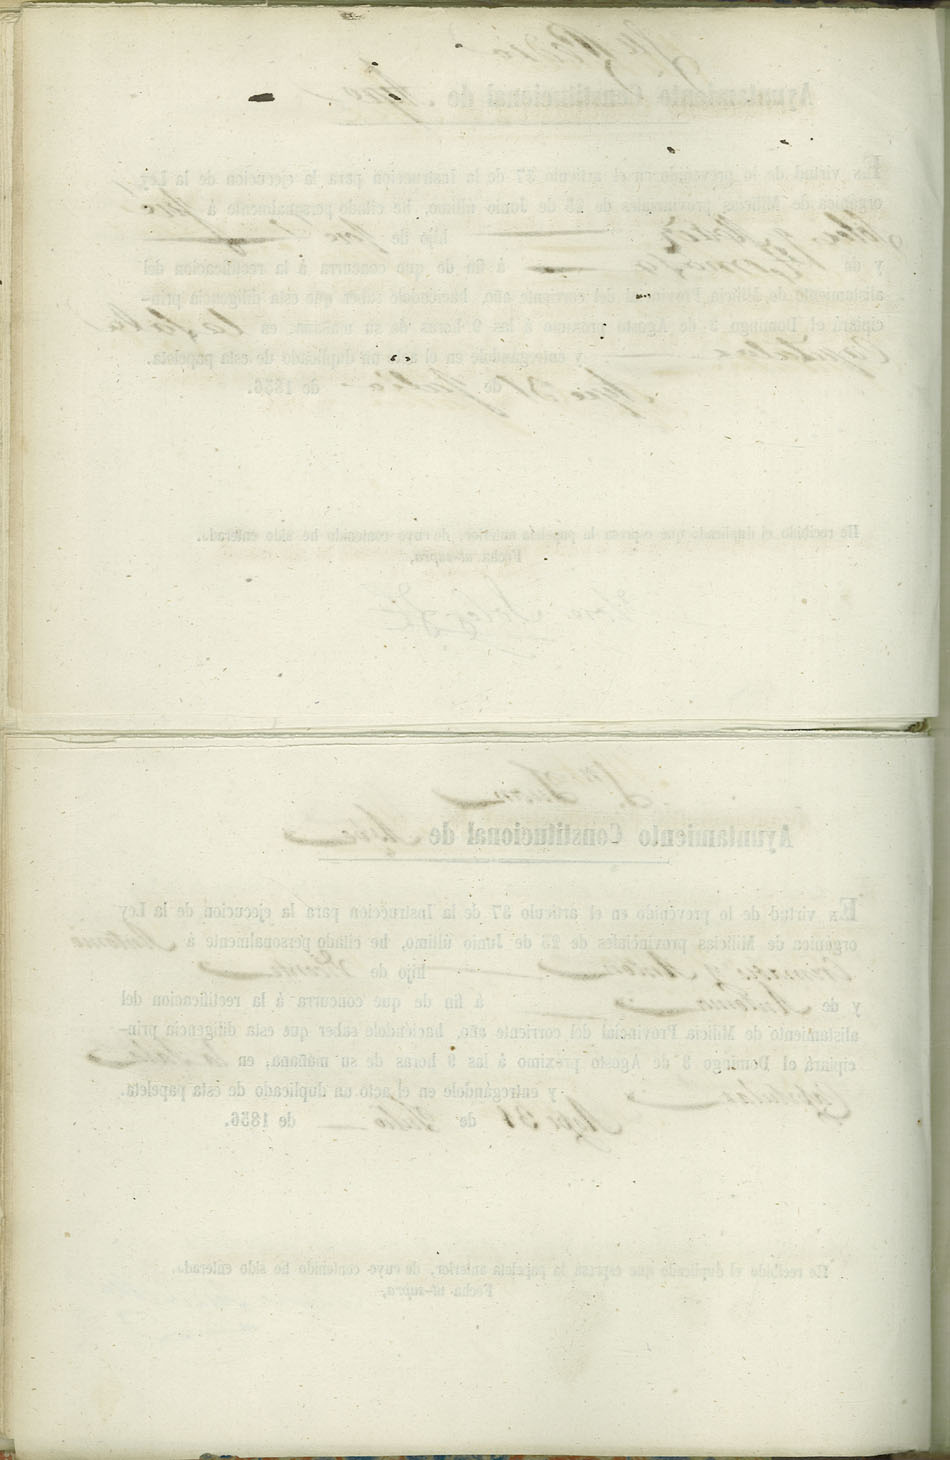 Ayuntamiento Constitucional de
En virtud de lo prevenido en el artículo 37 de la Instruccion para la ejecucion de la Ley
orgánica de Milicias provinciales de 25 de Junio último, he citado personalmente á José
hijo de José
y de á fin de que concurra á la rectificacion del
alistamiento de Milicia Provincial del corriente año, haciéndole saber que esta diligencia prin-
cipiará el Domingo 3 de Agosto próximo á las 9 horas de su mañana, en la Sala
Capitular y entregándole en el acto un duplicado de esta papeleta.
31 de Julio de 1856.
He recibido el duplicado que espresa la papeleta anterior, de cuyo contenido he sido enterado.
Fecha ut-supra,
Juan
Ayuntamiento Constitucional de
En virtud de lo prevenido en el artículo 37 de la Instruccion para la ejecucion de la Ley
orgánica de Milicias provinciales de 25 de Junio último, he citado personalmente á Antonio
hijo de Vicente
y de Antonia á fin de que concurra á la rectificacion del
alistamiento de Milicia Provincial del corriente año, haciéndole saber que esta diligencia prin-
cipiará el Domingo 3 de Agosto próximo á las 9 horas de su mañana, en la Sala
Capitular y entregándole en el acto un duplicado de esta papeleta.
31 de Julio de 1856.
He recibido el duplicado que espresa la papeleta anterior, de cuyo contenido he sido enterado.
Fecha ut-supra,